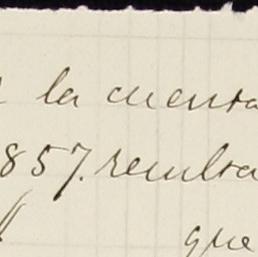 la cuenta
857. resulta
que